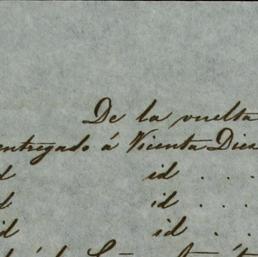 De la vuelta
entregado á Vicenta Dies
id id . . .
id id . . .
id id . .